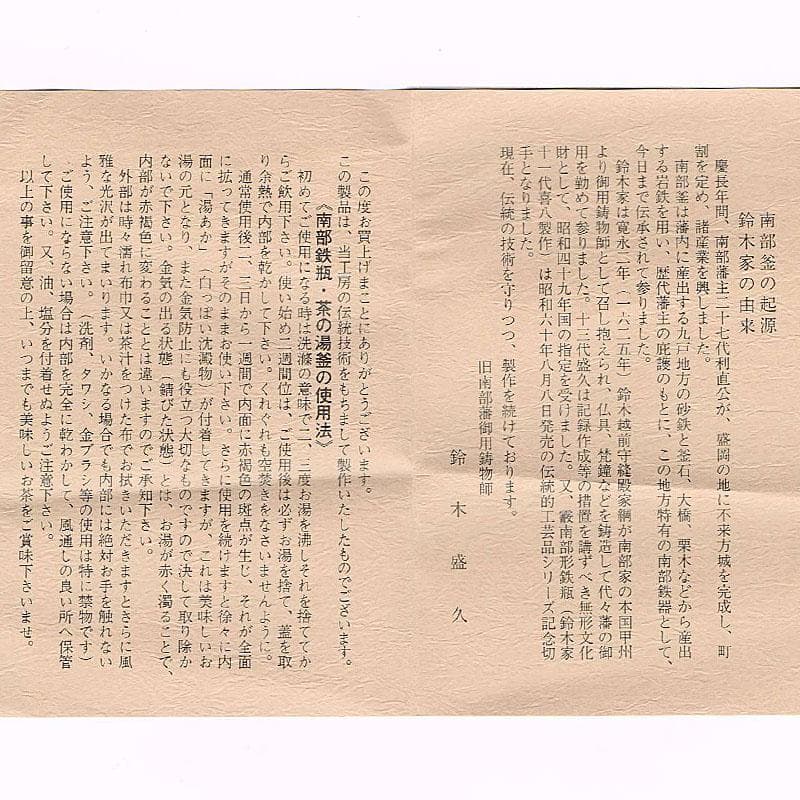 南部釜の起源
鈴木家の由来
慶長年間、南部藩主二十七代利直公が、盛岡の地に不来方城を完成し、町
割を定め、諸産業を興しました。
南部釜は藩内に産出する九戸地方の砂鉄と釜石、大橋、栗木などから産出
する岩鉄を用い、歴代藩主の庇護のもとに、この地方特有の南部鉄器として、
今日まで伝承されて参りました。
鈴木家は寛永二年（一六二五年）鈴木越前守縫殿家綱が南部家の本国甲州
より御用鋳物師として召し抱えられ、仏具、梵鐘などを鋳造して代々藩の御
用を勤めて参りました。十三代盛久は記録作成等の措置を講ずべき無形文化
財として、昭和四十九年国の指定を受けました。又、叢南部形鉄瓶（鈴木家
十一代喜八製作）は昭和六十年八月八日発売の伝統的工芸品シリーズ記念切
手となりました。
現在、伝統の技術を守りつつ、製作を続けております。
旧南部藩御用鋳物師
鈴木盛久
この度お買上げまことにありがとうございます。
この製品は、当工房の伝統技術をもちまして製作いたしたものでございます。
《南部鉄瓶・茶の湯釜の使用法》
初めてご使用になる時は洗滌の意味で二、三度お湯を沸しそれを捨ててか
らご飲用下さい。使い始め二週間位は、ご使用後は必ずお湯を捨て、蓋を取
り余熱で内部を乾かして下さい。くれぐれも空焚きをなさいませんように。
通常使用後二、三日から一週間で内面に赤褐色の斑点が生じ、それが全面
に拡ってきますがそのままお使い下さい。さらに使用を続けますと徐々に内
面に「湯あか」（白っぽい沈澱物）が付着してきますが、これは美味しいお
湯の元となり、また金気防止にも役立つ大切なものですので決して取り除か
ないで下さい。金気の出る状態（錆びた状態）とは、お湯が赤く濁ることで、
内部が赤褐色に変わることとは違いますのでご承知下さい。
外部は時々濡れ布巾又は茶汁をつけた布でお拭きいただきますとさらに風
雅な光沢が出てまいります。いかなる場合でも内部には絶対お手を触れない
よう、ご注意下さい。（洗剤、タワシ、金ブラシ等の使用は特に禁物です）
ご使用にならない場合は内部を完全に乾わかして、風通しの良い所へ保管
して下さい。又、油、塩分を付着せぬようご注意下さい。
以上の事を御留意の上、いつまでも美味しいお茶をご賞味下さいませ。